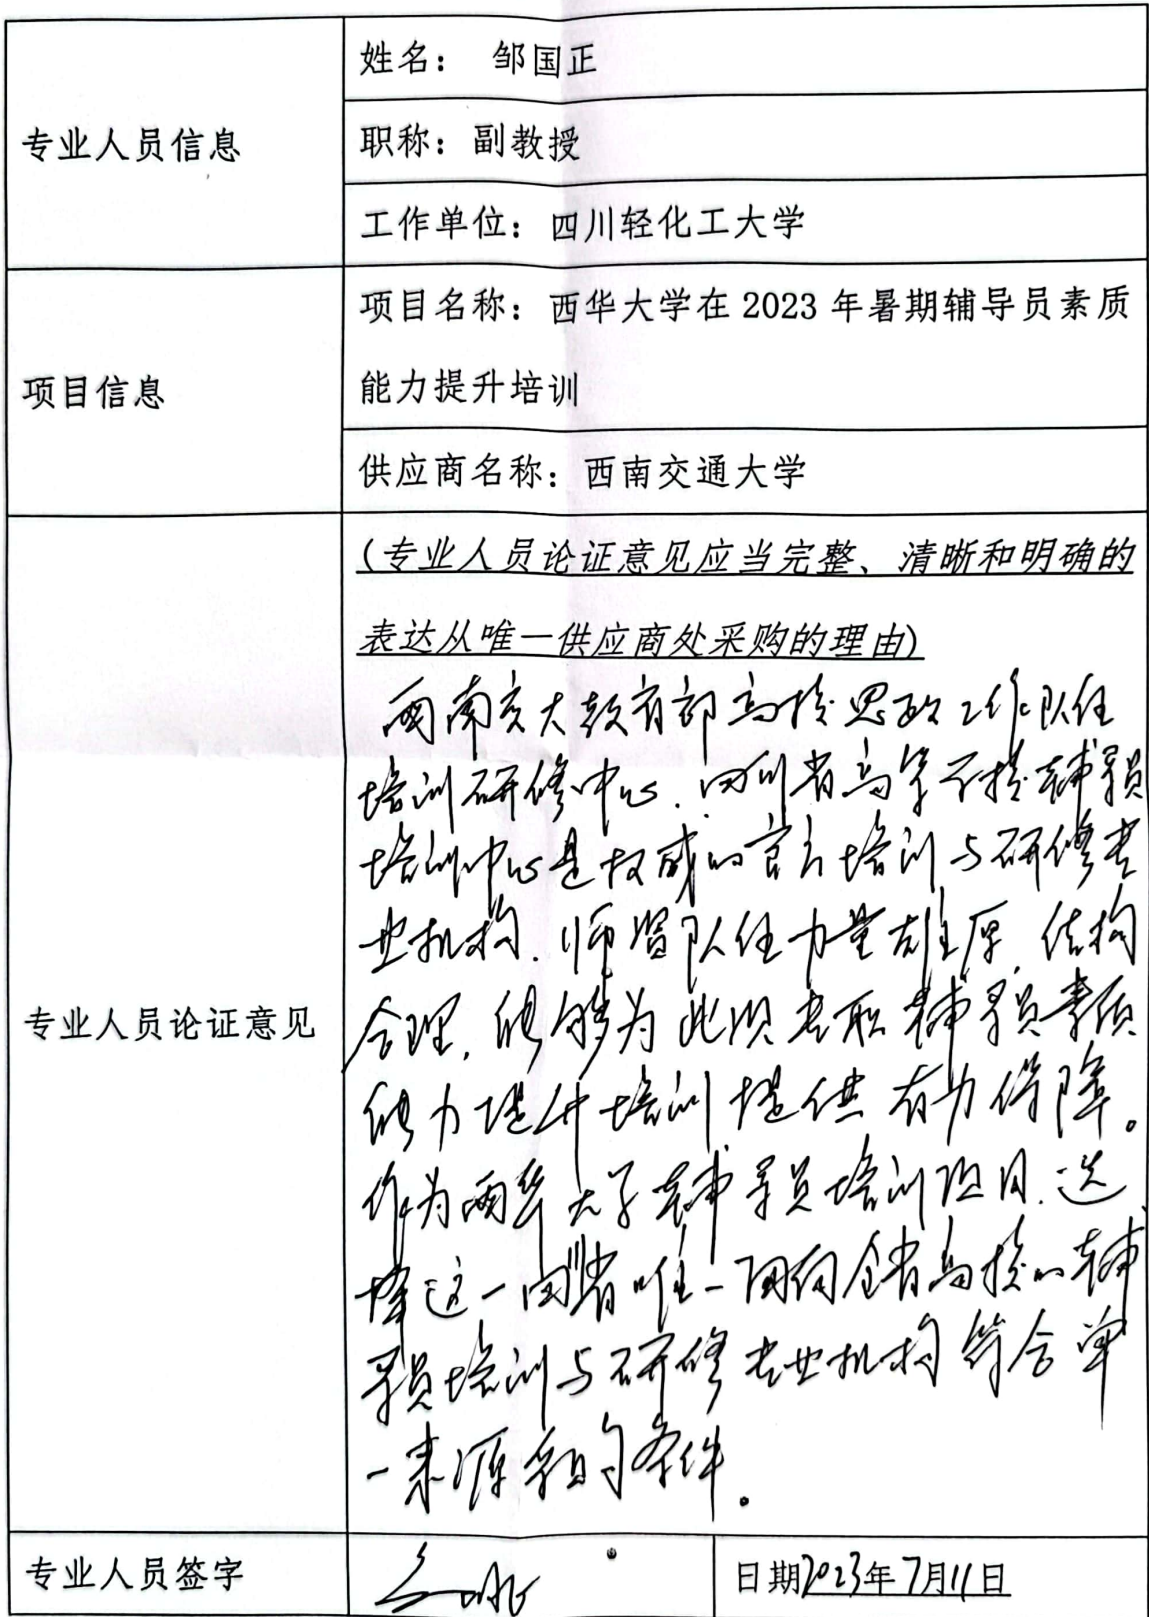 姓名： 邹国正
专业人员信息
职称：副教授
工作单位：四川轻化工大学
项目名称：西华大学在 2023 年暑期辅导员素质
项目信息
能力提升培训
供应商名称：西南交通大学
(专业人员论证意见应当完整、清晰和明确的
表达从唯一供应商处采购的理由)
西南交大教育部高校思政工作队伍
培训研修中心、四川省高等学校辅导员
培训中心是权威的官方培训与研修专
业机构，师资队伍力量雄厚，结构
专业人员论证意见
合理，能够为此项专职辅导员素质
能力提升培训提供有力保障。
作为西华大学辅导员培训项目，选
择这一四川省唯一面向全省高校的辅
导员培训与研修专业机构符合单
一来源采购条件。
专业人员签字
日期2023年7月11日